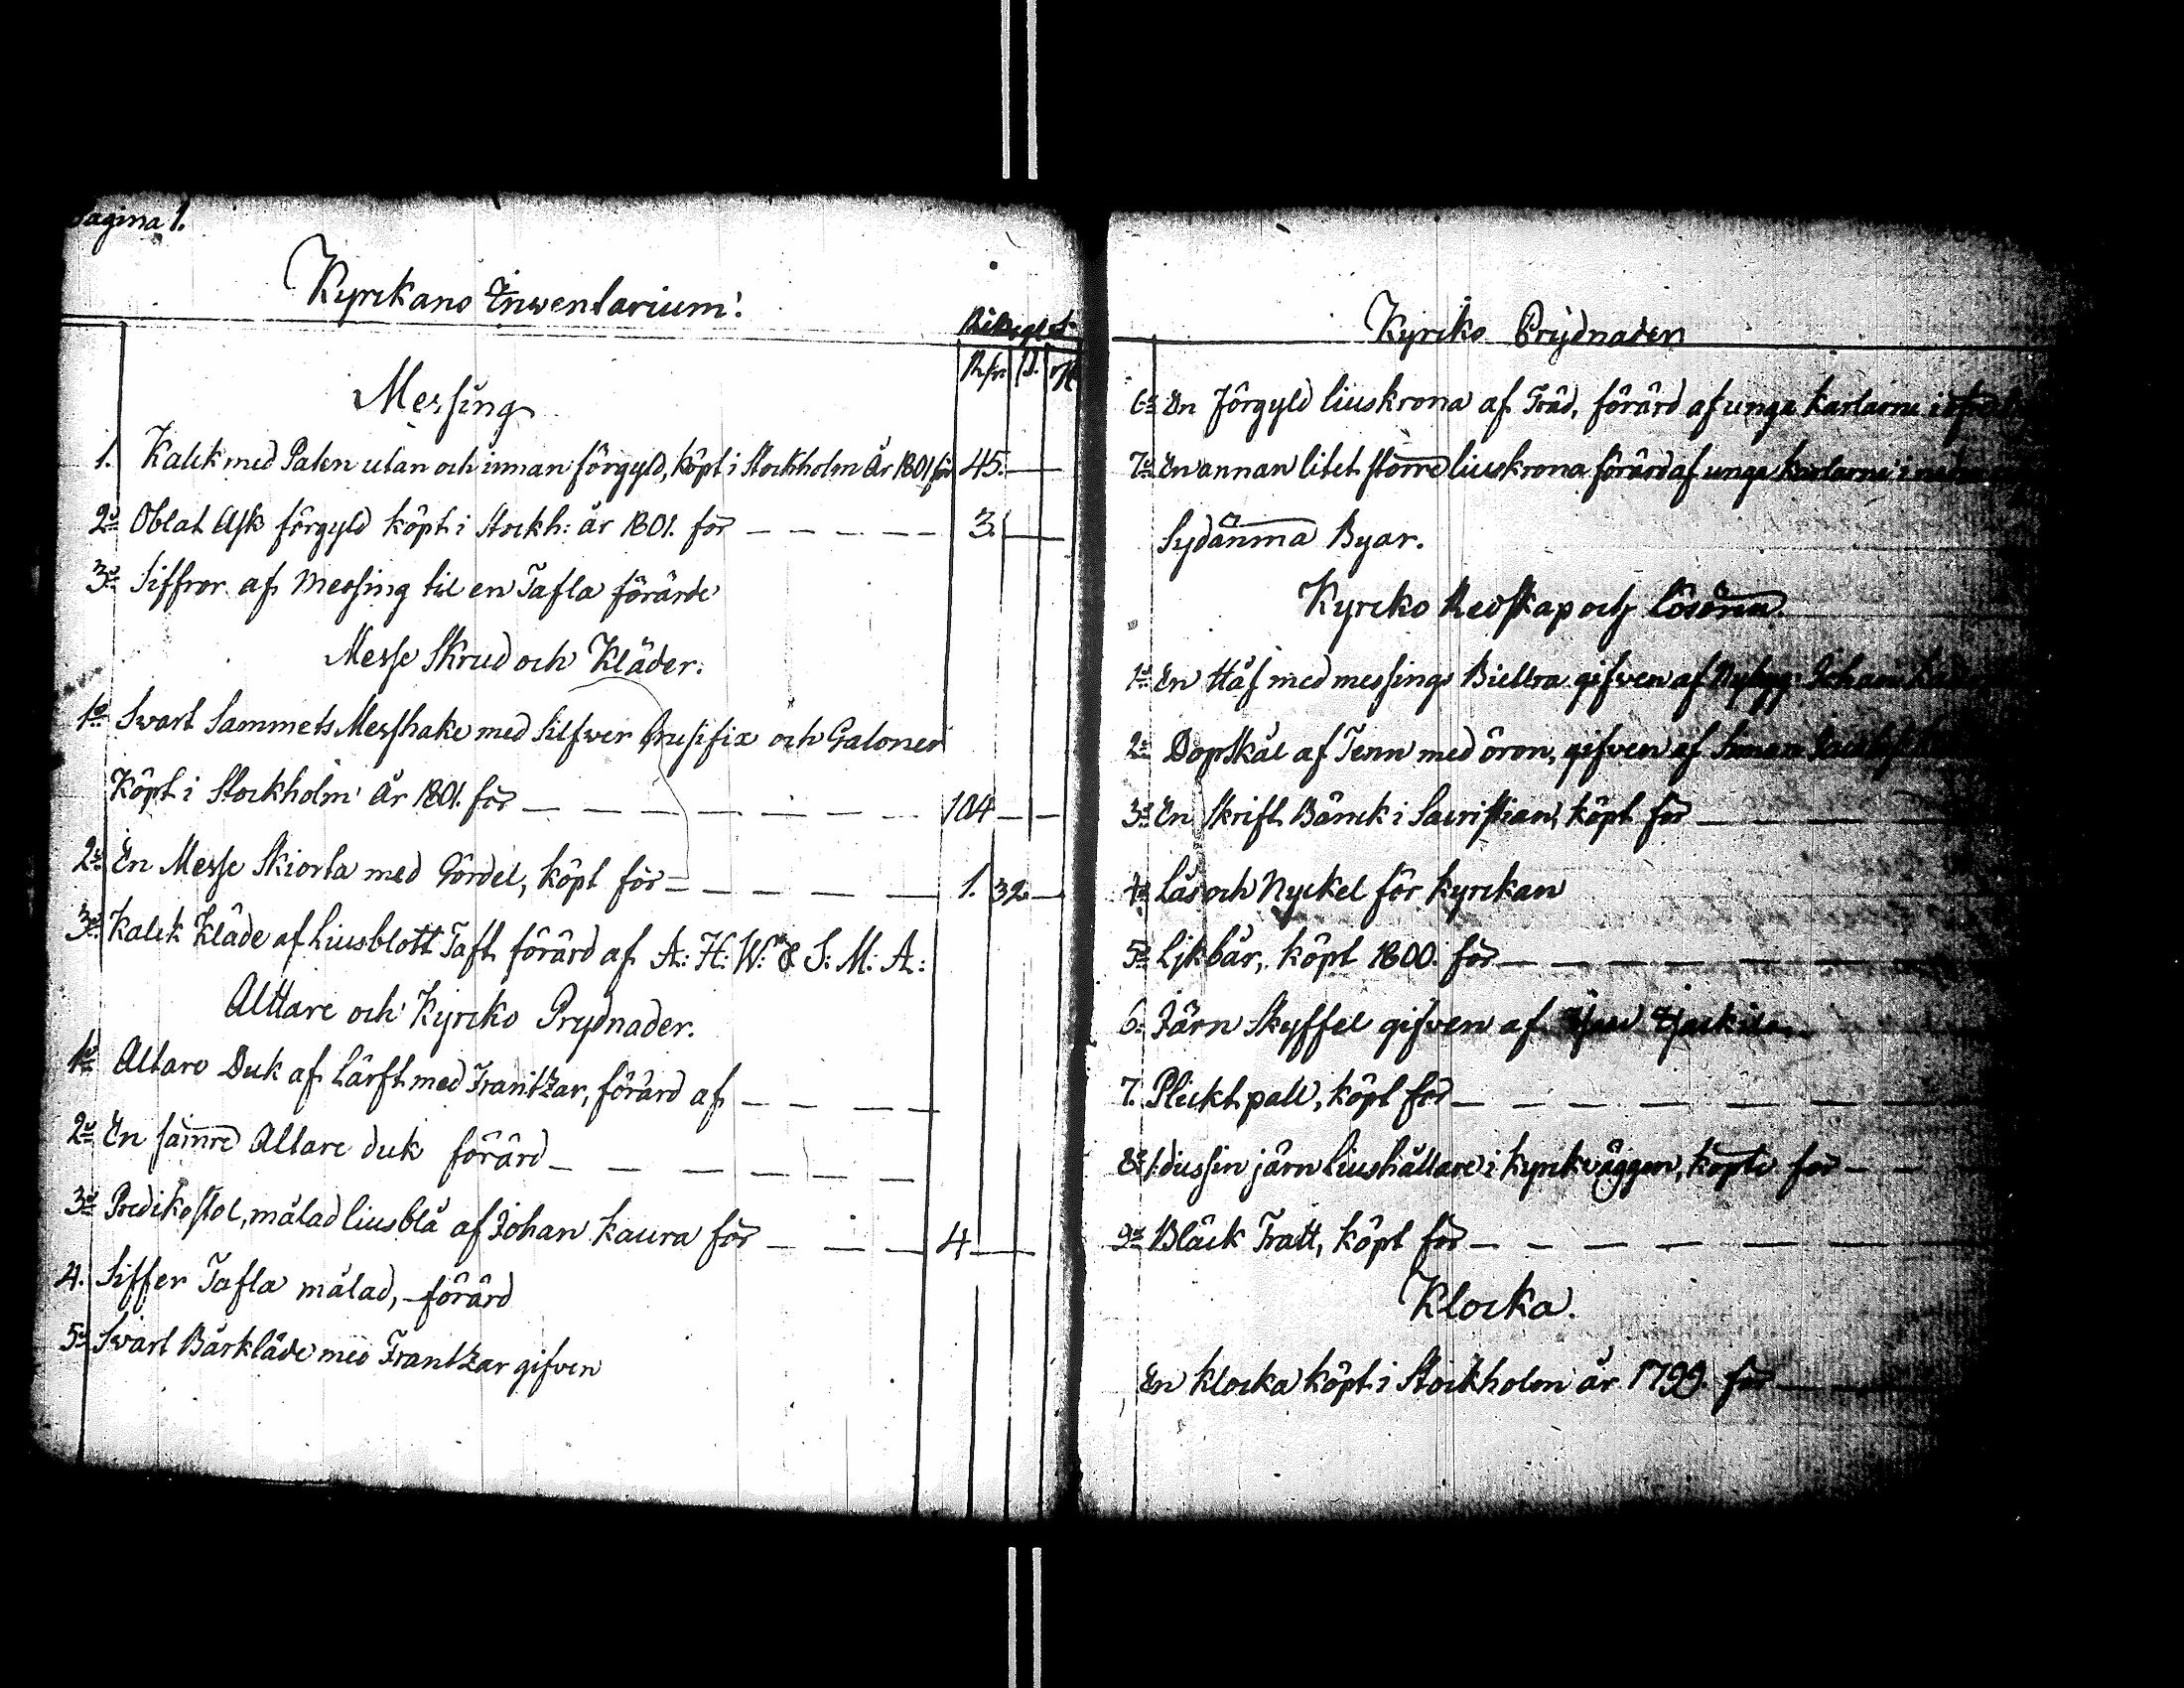 Pagina 1.
Kyrckans Inwentarium.
Riksgld:
Rdr. ß. rst
Messing
1. Kalck med Paten utan och innan förgyld, köpt i Stockholm År 1801 för 45.
2o Oblat Ask förgyld köpt i Stockh: år 1801. för 3.
3o Siffror af Messing til en Tafla förärde
Messe Skrud och Kläder.
1o Svart Sammets Messhake med Silfver Crusifix och Galoner
Köpt i Stockholm År 1801. för 104
2o En Messe Skiorta med Gördel, köpt för 1. 32
3o Kalck Kläde af Liusblott Taft förärd af A: H: W: & S: M: A:
Alttare och Kyrcko Prydnader.
1o Altare Duk af Lärft med Frantzar, förärd af
2o En sämre Altare duk förärd
3o Predikostol, målad liusblå af Johan Kaura för 4
4. Siffer Tafla målad, förärd
5o Svart Bårkläde med Frantzar gifven
Kyrcko Prydnader
6o En förgyld liuskrona af Träd, förärd af unga karlarne i
7o En annan litet större liuskrona förärd af unga karlarne i
Sydänma Byar.
Kyrcko Redskap och Lösören.
1o En Håf med messings Biellra gifven af Nybygg: Johan
2o Dopskål af Tenn med öron, gifven af
3o En Skrift Bänck i Sacristian, köpt för
4o Lås och Nyckel för kyrckan
5o Likbår, köpt 1800. för
6. Järn Skyffel gifven af
7. Plickt pall, köpt för
8o 1 dussin järn Liushållare i kyrckväggen, köpte för
9o Bläck Tratt, köpt för
Klocka.
En klocka köpt i Stockholm år 1799. för